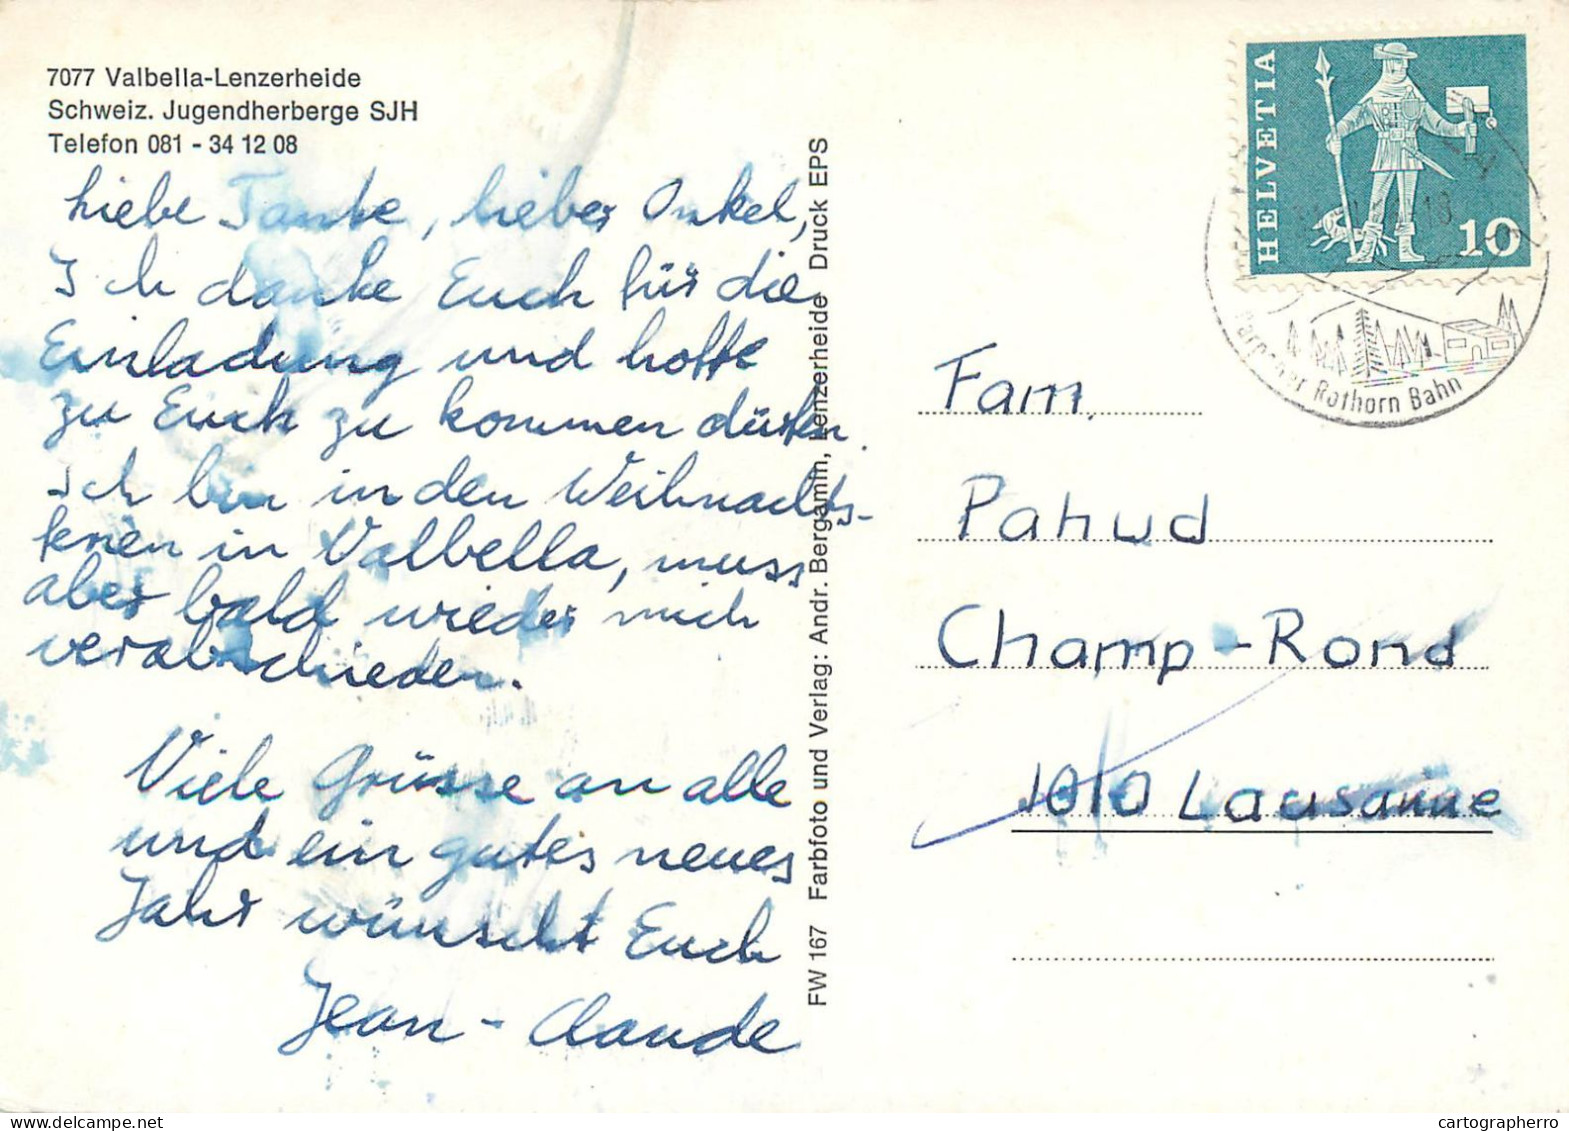 7077 Valbella-Lenzerheide
Schweiz. Jugendherberge SJH
Telefon 081 - 34 12 08
Liebe Tante, lieber Onkel,
Ich danke Euch für die
Einladung und hoffe
zu Euch zu kommen dürfen.
Ich bin in den Weihnachts-
ferien in Valbella, muss
aber bald wieder mich
verabschieden.
Viele Grüsse an alle
und ein gutes neues
Jahr wünscht Euch
Jean-Claude
FW 167 Farbfoto und Verlag: Andr. Bergamin, Lenzerheide Druck EPS
HELVETIA
10
Parpaner Rothorn Bahn
Fam.
Pahud
Champ-Rond
1010 Lausanne
cartographerro